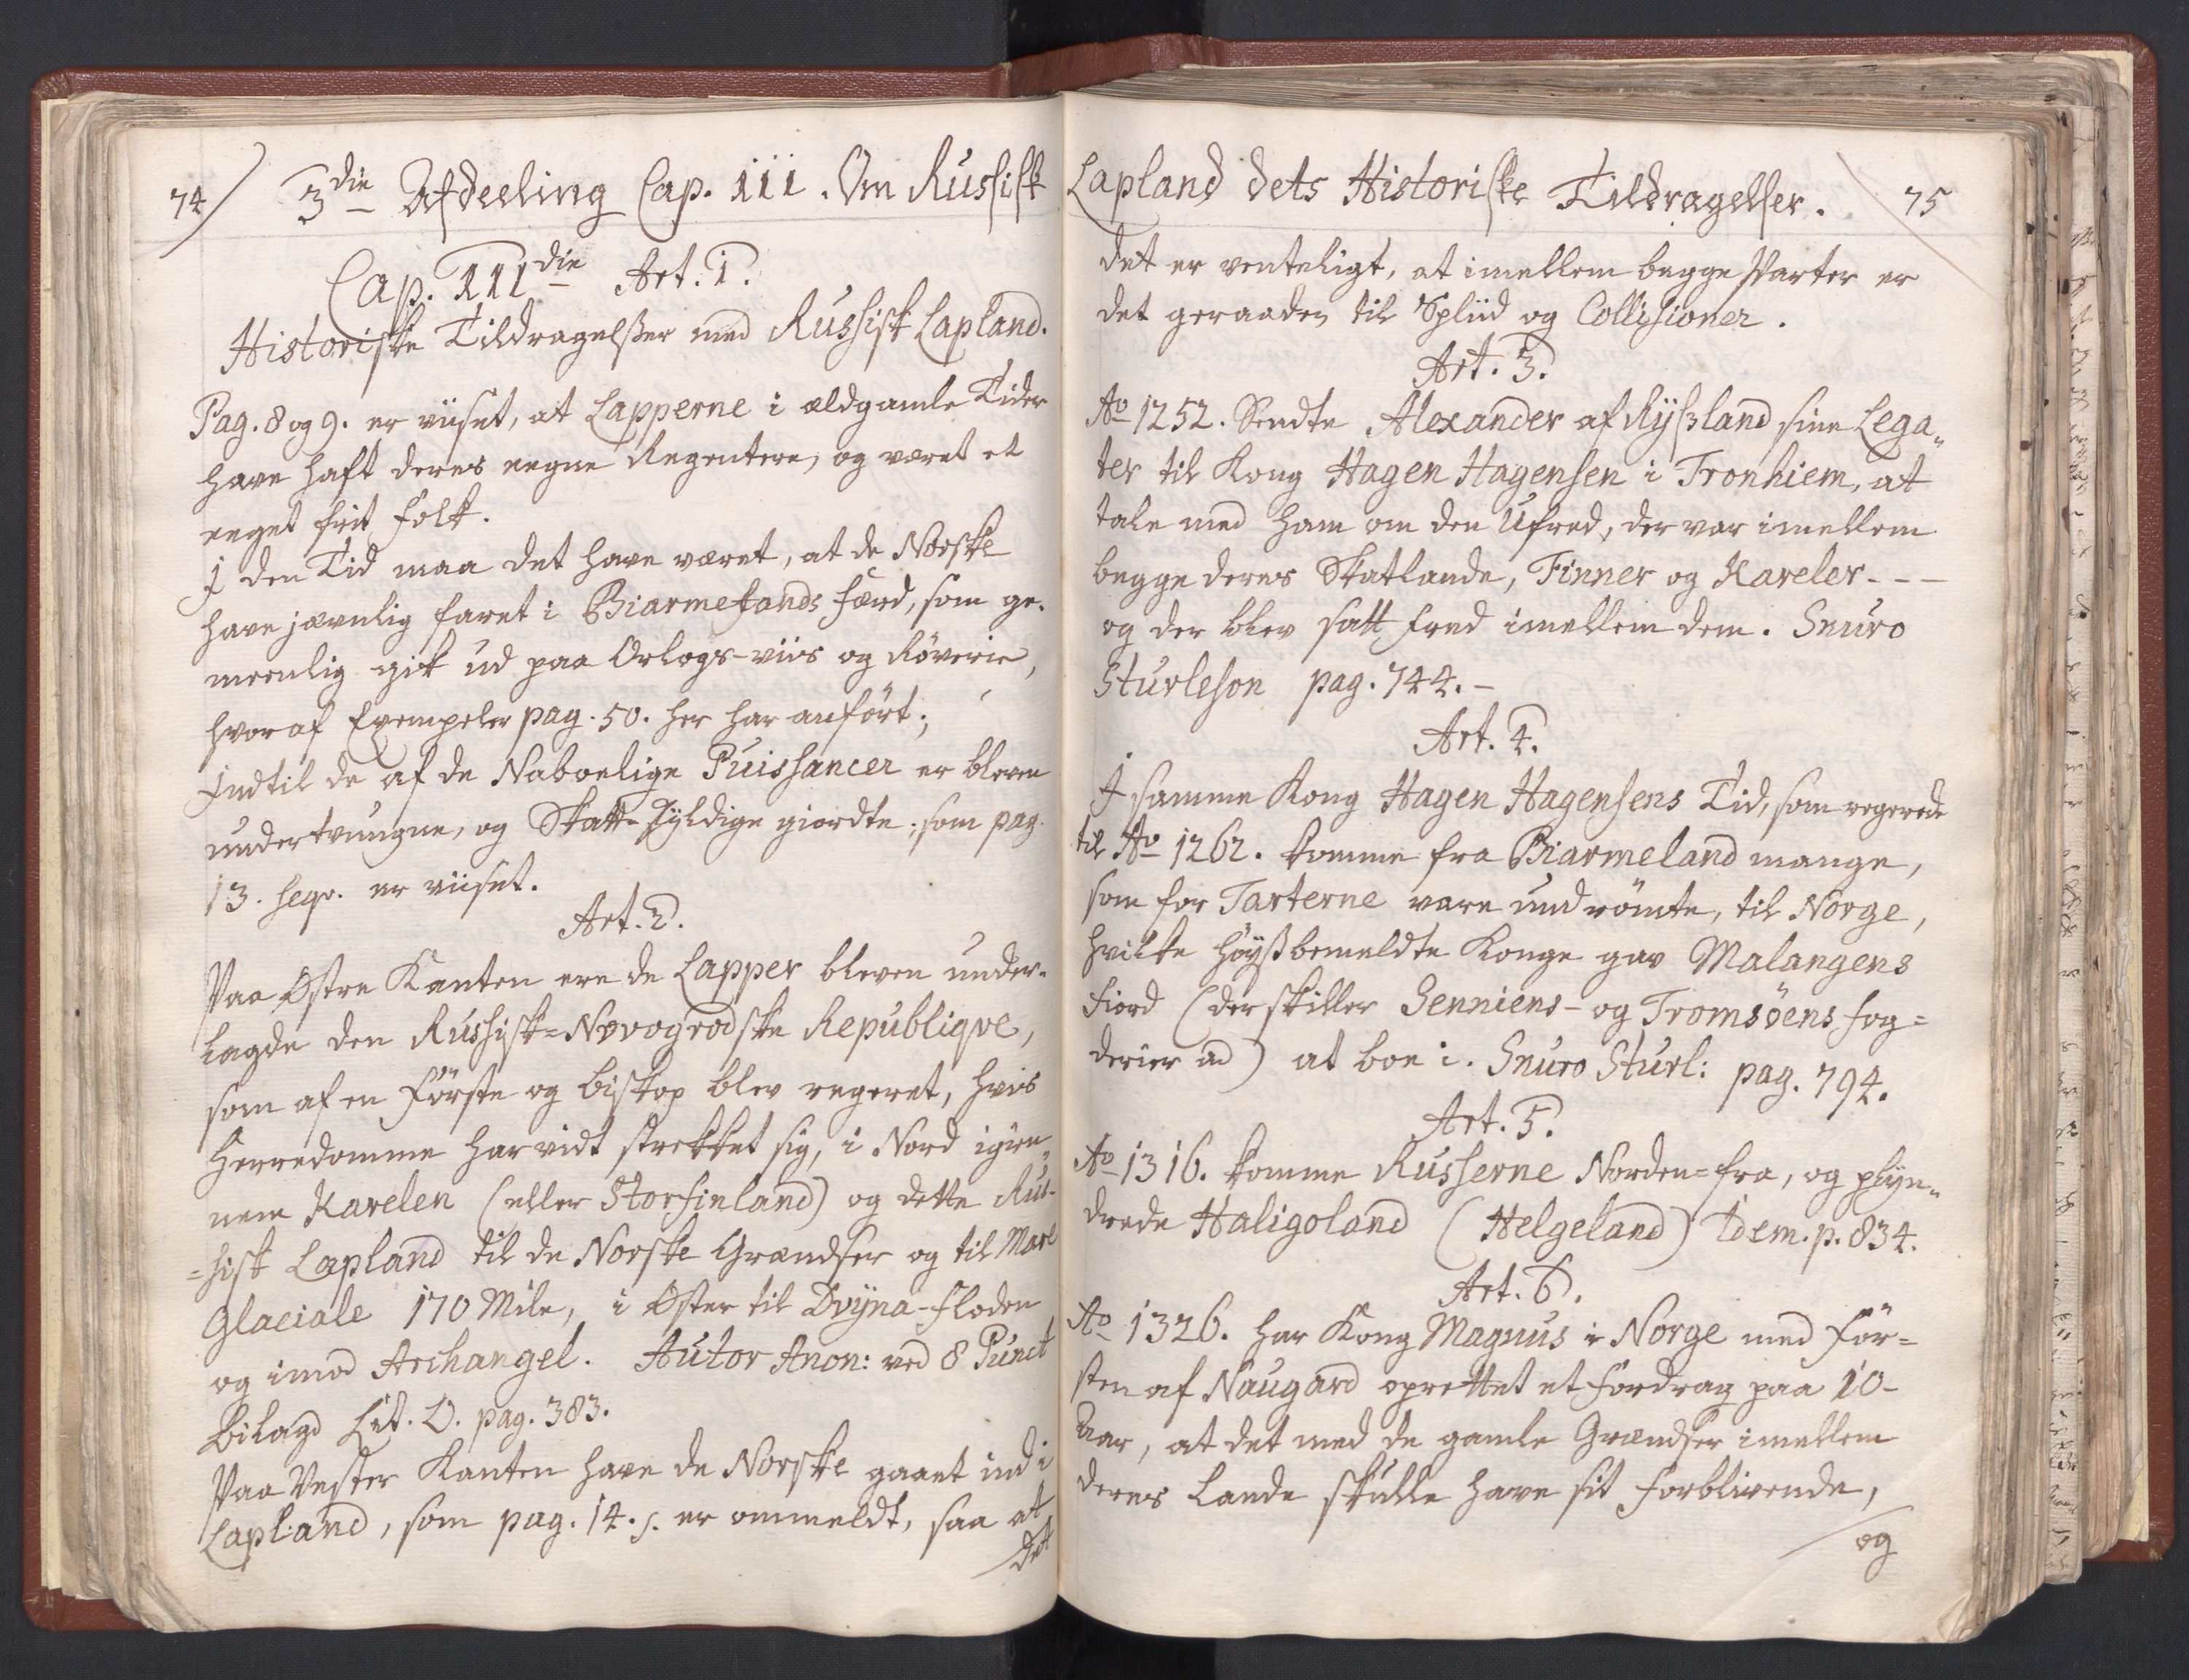 74/ 3die Afdeeling Cap. III. Om Russisk
Cap. IIIdie Art. 1.
Historiske Tildragelsser med Russisk Lapland.
Pag. 8 og 9. er viiset, at Lapperne i ældgamle Tider
have haft deres eegne Regentere, og været et
eeget frit Folk.
I den Tid maa det have været, at de Norske
have jævnlig faret i Biarmelands færd, som ge-
meenlig gik ud paa Orlogs-viis og Röverie,
hvoraf Exempeler pag. 50. her har anfört;
Indtil de af de Naboelige Puissancer er bleven
undertvungne, og Skatt-skyldige giordte; som pag.
13. seqv. er viiset.
Art. 2.
Paa Østre Kanten ere de Lapper bleven under-
lagde den Russisk=Novogrodske Republiqve,
som af en Förste og Biskop blev regeret, hvis
Herredomme har vidt strekket sig, i Nord igien-
nem Karelen (eller Storfinland) og dette Rus-
=sisk Lapland til de Norske Grændser og til Mare
Glaciale 170 Mile, i Øster til Dvÿna-floden
og imod Archangel. Autor Anon: ved 8 Punct
Bilagd Lit. O. pag. 383.
Paa Vester Kanten have de Norske gaaet ind i
Lapland, som pag. 14. s. er ommeldt, saa at
det
Lapland dets Historiske Tildragelser. 75
det er venteligt, at imellem begge Parter er
det geraaden til Spliid og Collisioner.
Art. 3.
Ao 1252. Sendte Alexander af Rÿssland sine Lega-
ter til Kong Hagen Hagensen i Tronhiem, at
tale med ham om den Ufred, der var imellem
begge deres Skatlande, Finner og Kareler - - -
og der blev satt fred imellem dem. Snuro
Sturleson pag. 744. -
Art. 4.
I samme Kong Hagen Hagensens Tid, som regerede
til Ao 1262. komme fra Biarmeland mange,
som for Tarterne vare undrömte, til Norge,
hvilke höÿstbemeldte Konge gav Malangens
Fiord (der skiller Senniens- og Tromsöens fog=
derier ad) at boe i. Snuro Sturl: pag. 794.
Art. 5.
Ao 1316. komme Russerne Norden=fra, og plÿn-
drede Haligoland (Helgeland) Idem. p. 834.
Art. 6.
Ao 1326. har Kong Magnus i Norge med För=
sten af Naugard oprettet et fordrag paa 10-
Aar, at det med de gamle Grændser imellem
deres Lande skulle have sit forblivende,
og